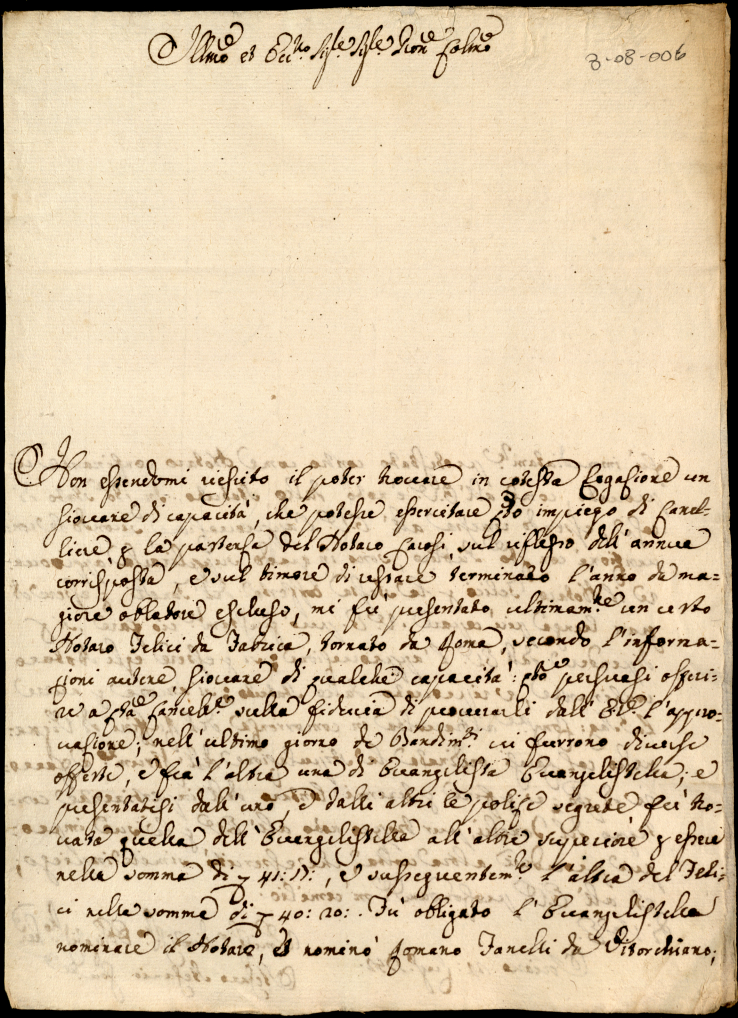 Illmo et Ecc.mo Sig.re Sig.re Pron.e Colmo
3-08-006
Non essendomi riescito il poter trovare in cotesta Cogasione un
Giovane di capacità, che potesse esercitare impiego di Cancel-
liere, p la partenza del Notaro Carosi, sul riflesso dell' annua
corrisposta, e sul timore di restare terminato l'anno da ma-
giore oblatore escluso, mi fù presentato ultimam.te un certo
Notaro Felici da Fabrica, tornato da Roma, secondo l'informa=
zioni avutene, Giovane di qualche capacità: persuasi offeri-
re a Cancell.a sulla fiducia di procurarli dall' l'appro-
vazione; nell'ultimo giorno de Bandim.ti vi furrono diverse
offerte, e frà l'altre una di Evangelista Evangelistella; e
presentatesi dall'uno, e dalli altri le polise segrete fù tro-
vata quella dell'Evangelistella all'altre superiore p essere
nella somma di 41:17:, e susseguentem.te l'altra del Feli-
ci nella somma di 40:20:. Fù obligato l'Evangelistella
nominare il Notaro, et nominò Romano Fanelli da Vitorchiano;